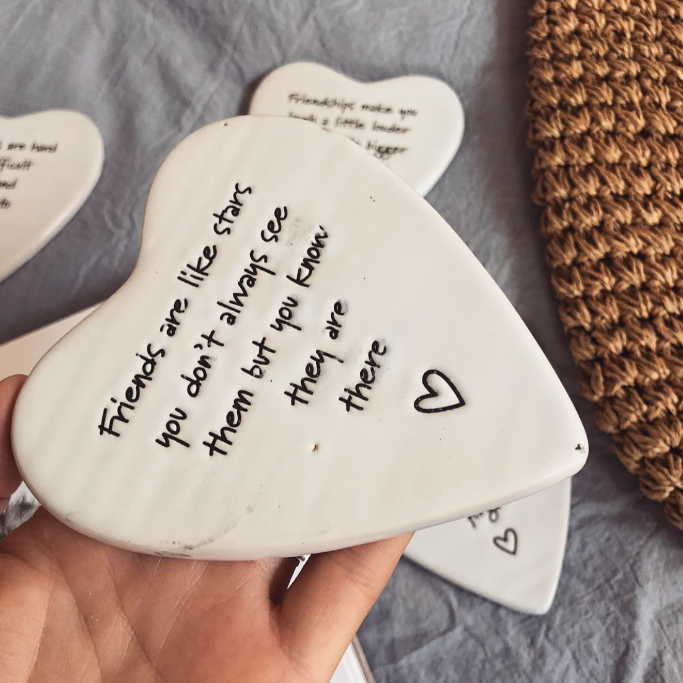 Friends are like stars
you don't always see
them but you know
they are
there
Friendships make you
laugh a little louder
bigger
are hard